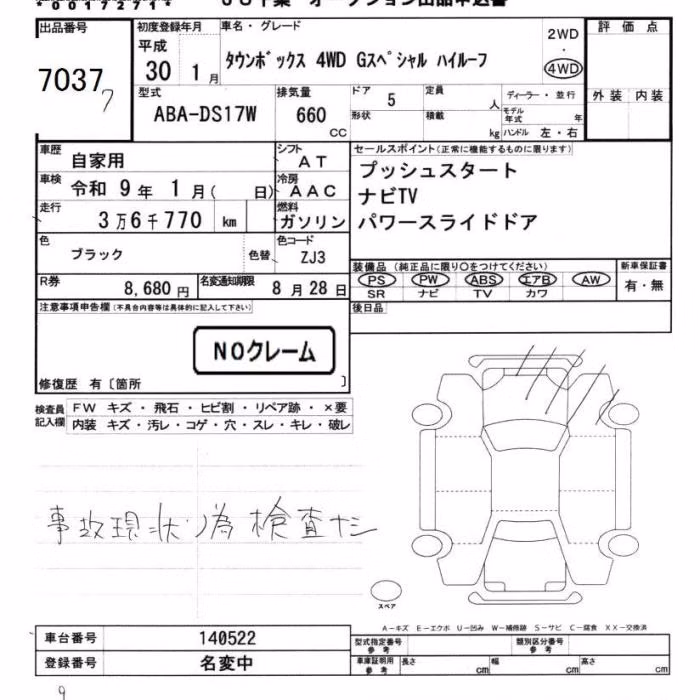 00172714
出品番号
7037
7
初度登録年月
平成
30 1月
車名・グレード
タウンボックス 4WD Gスペシャル ハイルーフ
2WD
・
4WD
評価点
外装 内装
型式
ABA-DS17W
排気量
660
CC
ドア
5
形状
定員
人
積載
kg
ディーラー・並行
モデル年式 年
ハンドル 左・右
車歴
自家用
シフト
AT
車検
令和 9年 1月( 日)
冷房
AAC
走行
3万6千770 km
燃料
ガソリン
色
ブラック
色替
色コード
ZJ3
R券
8,680 円
名変通知期限
8月28日
セールスポイント(正常に機能するものに限ります)
プッシュスタート
ナビTV
パワースライドドア
装備品(純正品に限り○をつけてください)
PS PW ABS エアB AW
SR ナビ TV カワ
新車保証書
有・無
後日品
注意事項申告欄(不具合内容等は具体的に記入して下さい)
NOクレーム
修復歴 有〔箇所 〕
検査員
記入欄
FW キズ・飛石・ヒビ割・リペア跡・×要
内装 キズ・汚レ・コゲ・穴・スレ・キレ・破レ
事故現状ノ為 検査ナシ
スペア
A-キズ E-エクボ U-凹み W-補修跡 S-サビ C-腐食 XX-交換済
車台番号
140522
登録番号
名変中
型式指定番号
参考
類別区分番号
参考
車庫証明用
参考
長さ cm
幅 cm
高さ cm
9